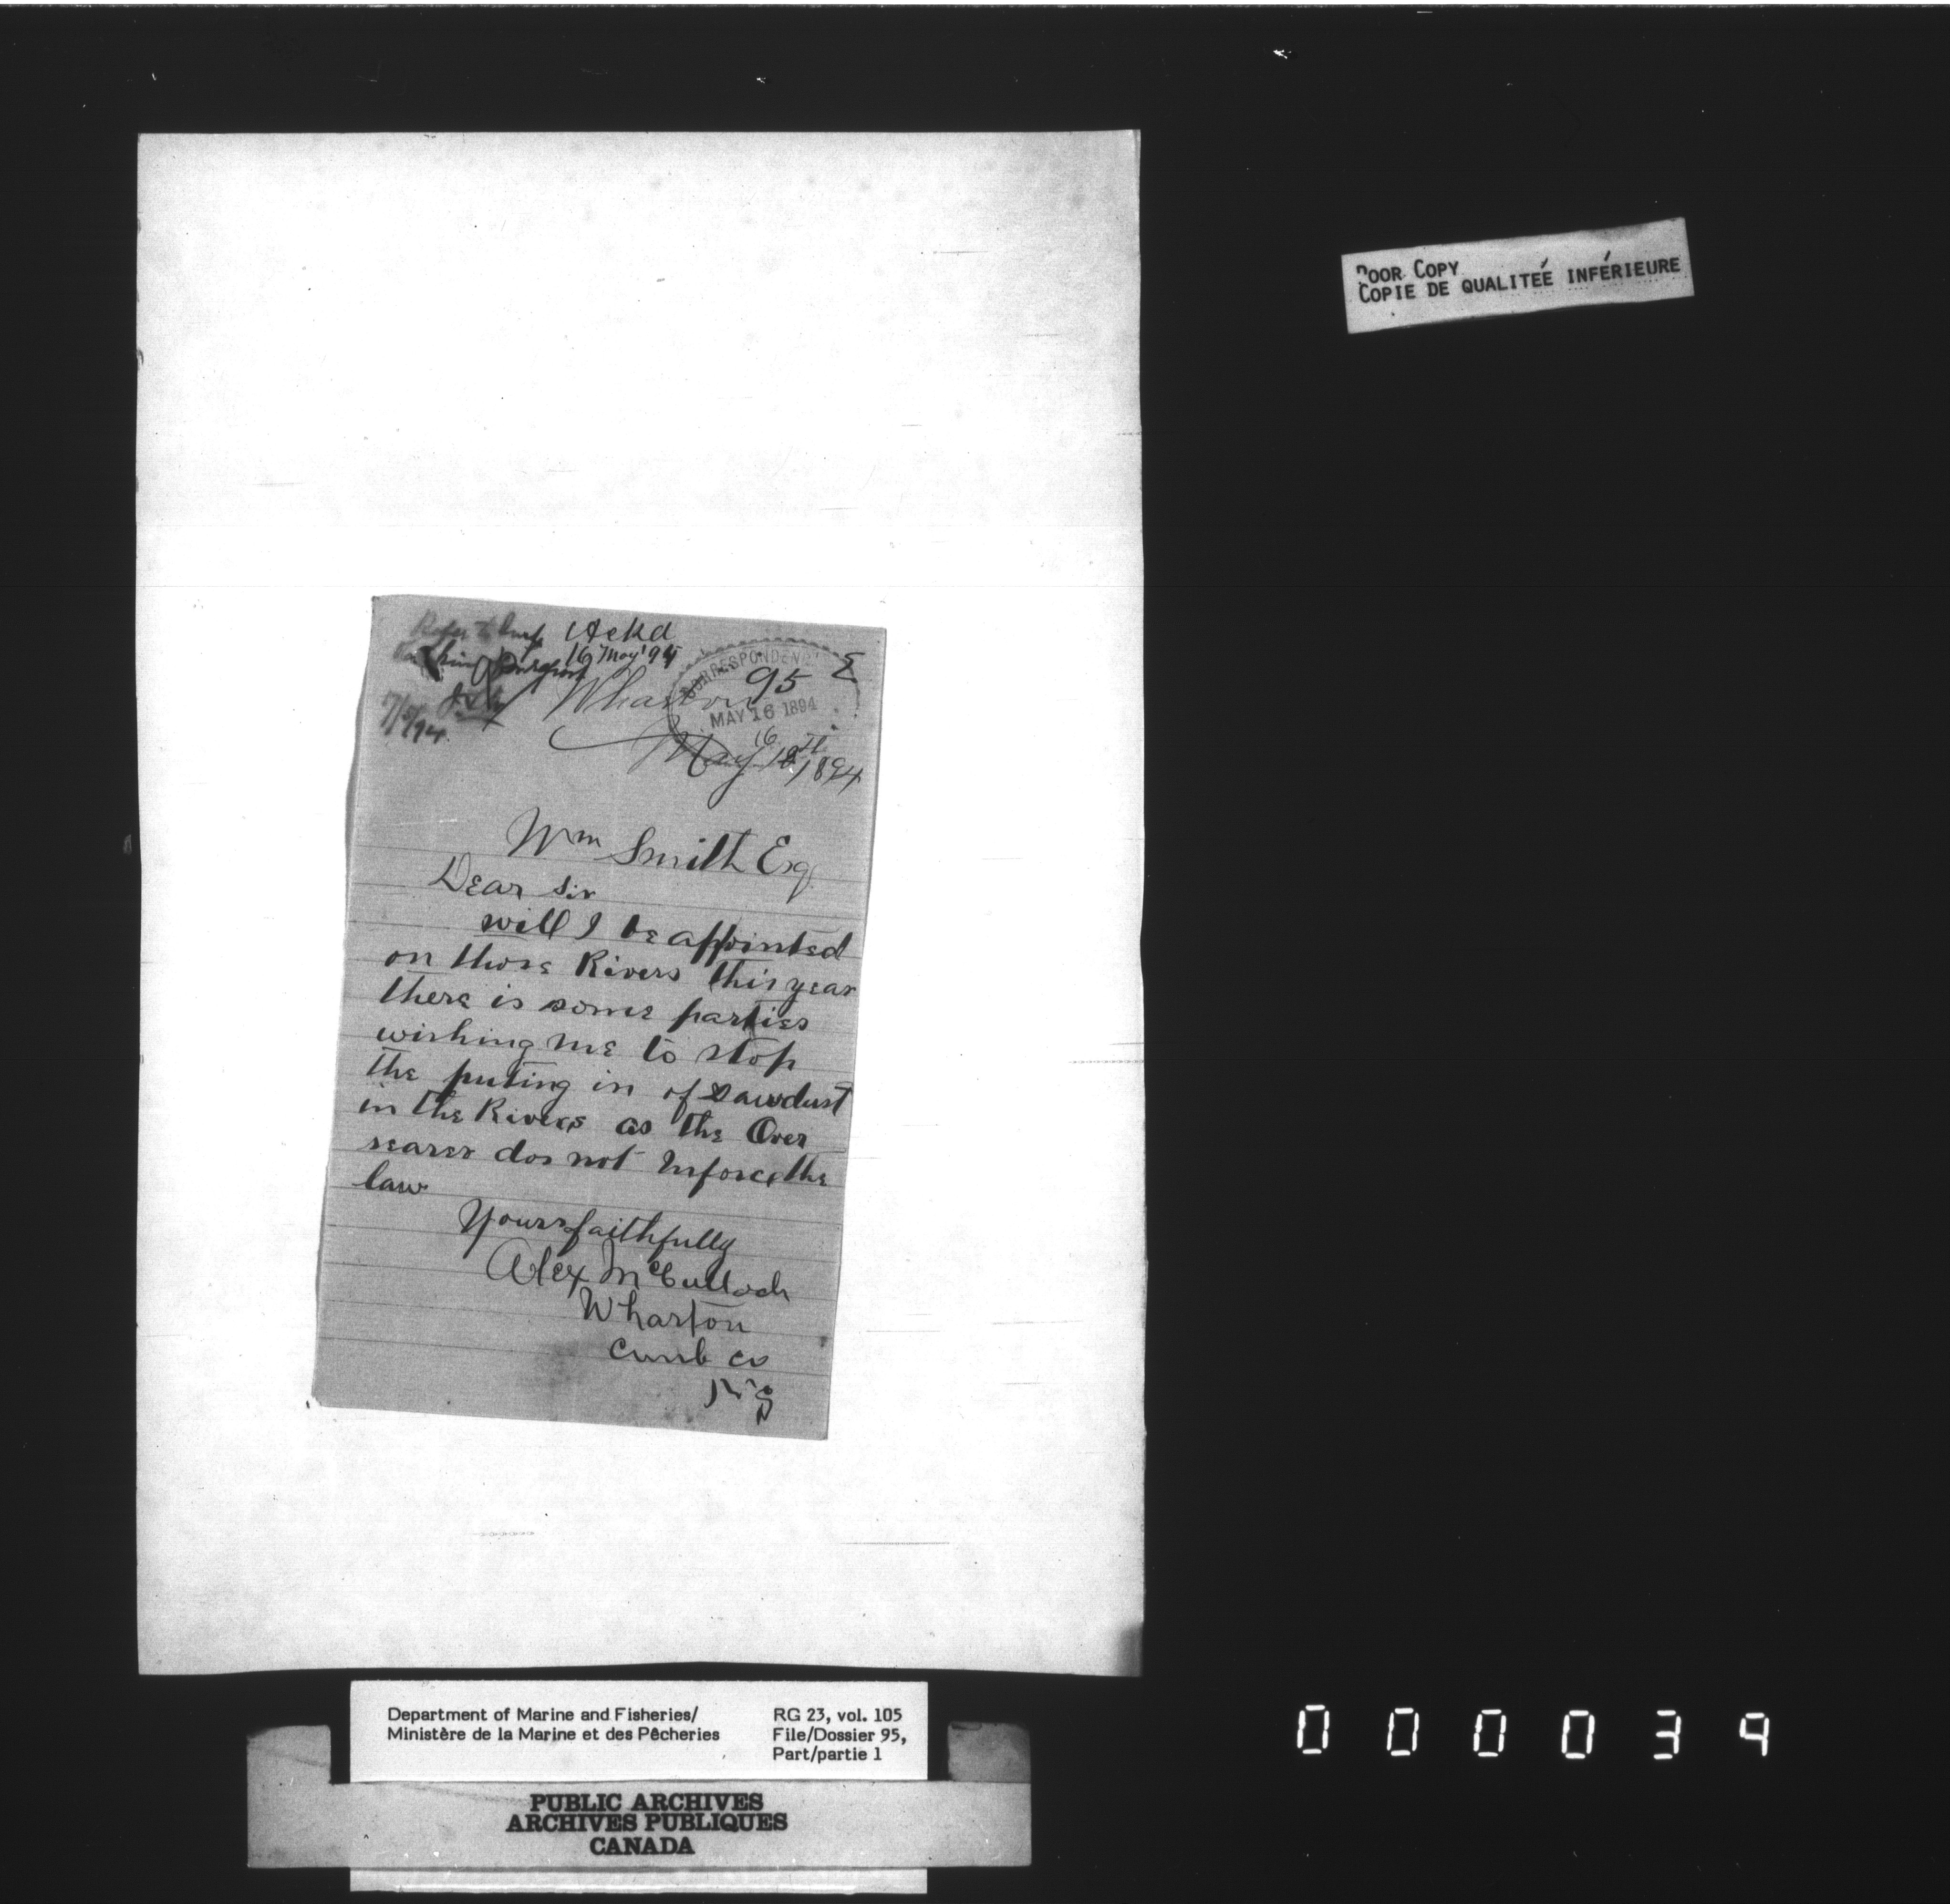 POOR COPY
COPIE DE QUALITEÉ INFÉRIEURE
Refer to
Ackd
16 May '94
CORRESPONDEN
95
MAY 16 1894
Wharton
16
May 12th 1894
Wm Smith Esq
Dear sir
will I be appointed
on those Rivers this year
there is some parties
wishing me to stop
the puting in of Sawdust
in the Rivers as the Over
searer dos not Inforce the
law
Yours faithfully
Alex McCulloch
Wharton
Cumb co
N S
Department of Marine and Fisheries/
Ministère de la Marine et des Pêcheries
RG 23, vol. 105
File/Dossier 95,
Part/partie 1
PUBLIC ARCHIVES
ARCHIVES PUBLIQUES
CANADA
000039